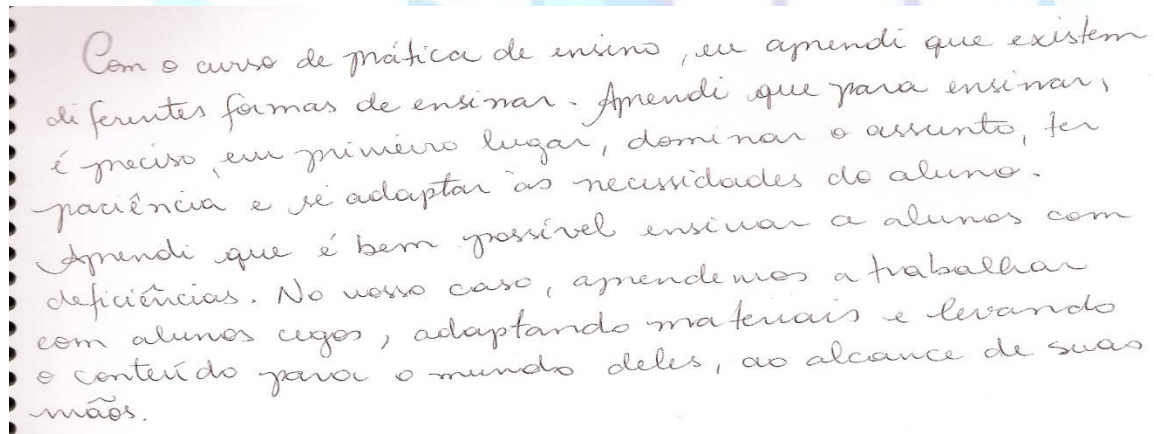 Com o curso de prática de ensino, eu aprendi que existem
diferentes formas de ensinar. Aprendi que para ensinar,
é preciso, em primeiro lugar, dominar o assunto, ter
paciência e se adaptar às necessidades do aluno.
Aprendi que é bem possível ensinar a alunos com
deficiências. No nosso caso, aprendemos a trabalhar
com alunos cegos, adaptando materiais e levando
o conteúdo para o mundo deles, ao alcance de suas
mãos.